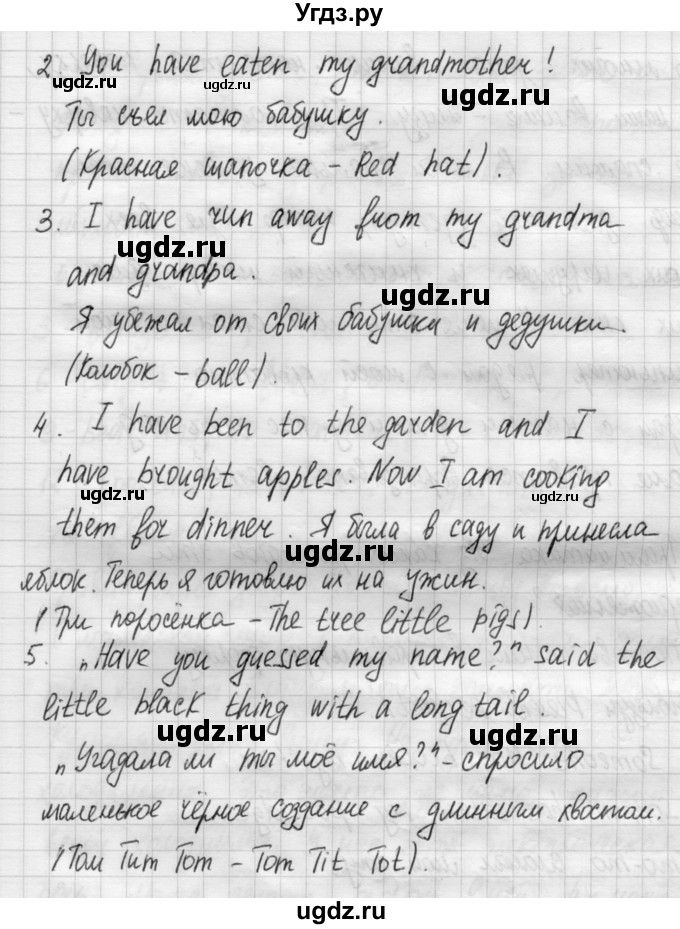 Угдз.ру
2. You have eaten my grandmother!
Ты съел мою бабушку.
(Красная шапочка - Red hat).
3. I have run away from my grandma
and grandpa.
Я убежал от своих бабушка и дедушки.
(Колобок - ball).
4. I have been to the garden and I
have brought apples. Now I am cooking
them for dinner. Я была в саду и принесла
яблок. Теперь я готовлю их на ужин.
(Три поросёнка - The tree little pigs).
5. „Have you guessed my name?" said the
little black thing with a long tail.
„Угадала ли ты моё имя?" - спросило
маленькое чёрное создание с длинным хвостом.
(Том Тит Тот - Tom Tit Tot).
ugdz.ru